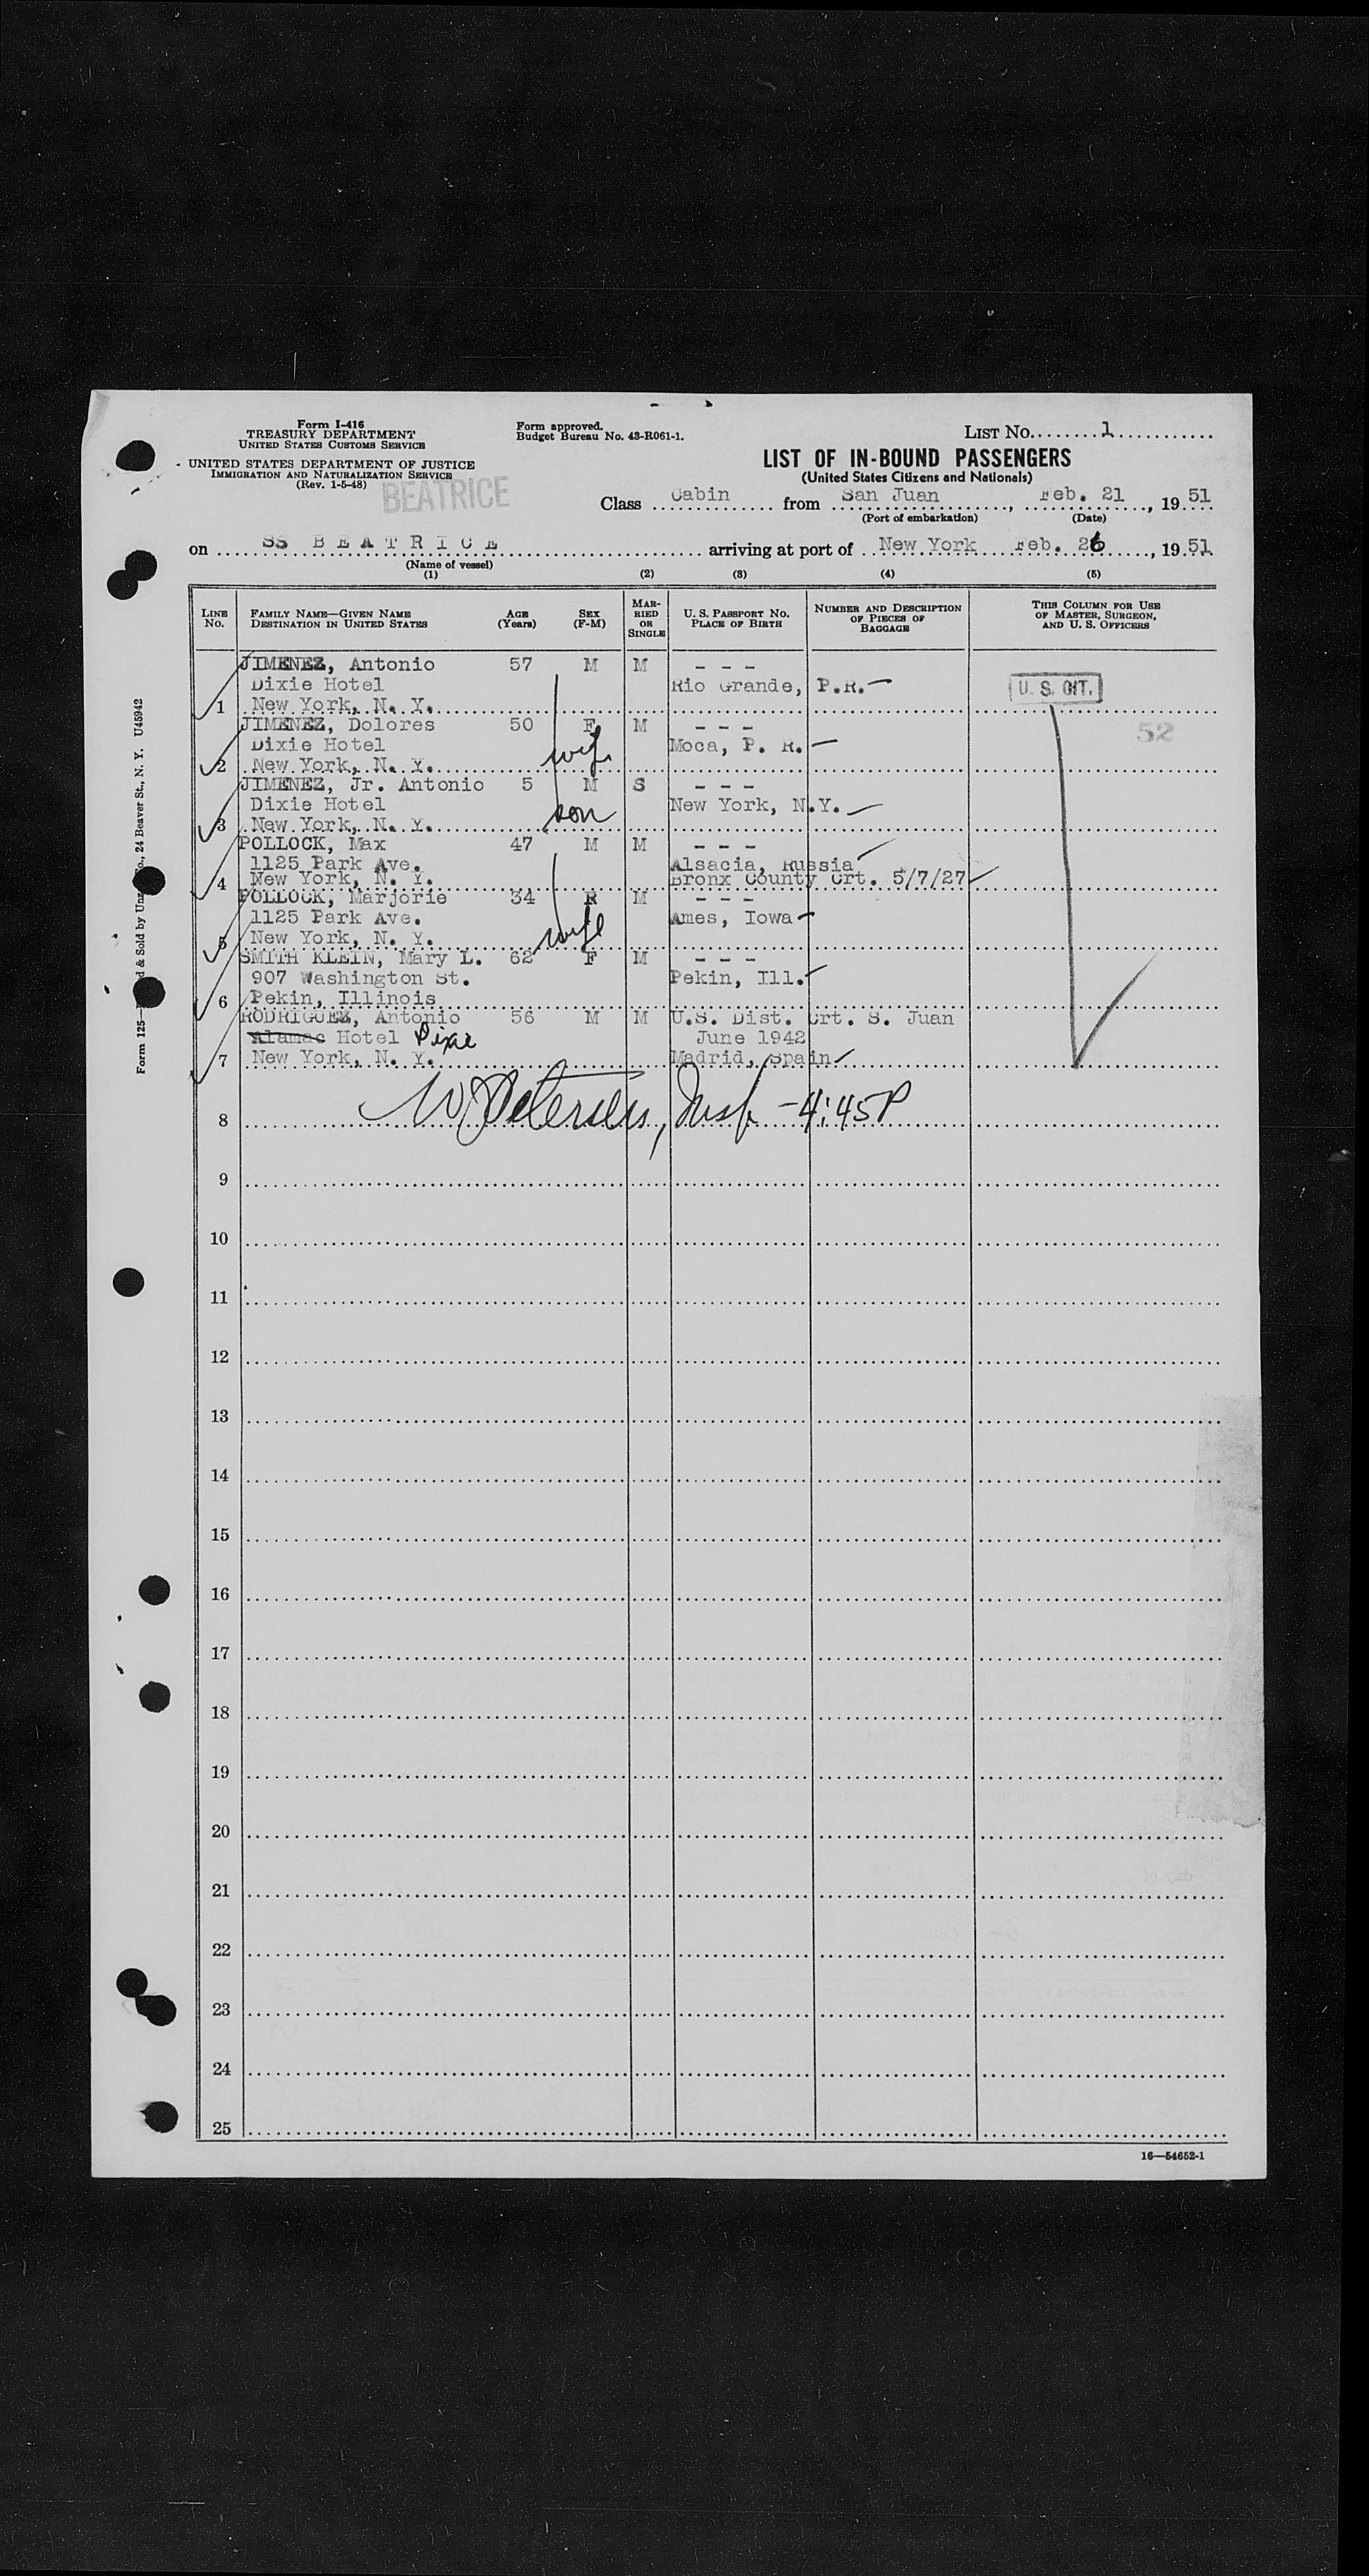 Form I-416
TREASURY DEPARTMENT
UNITED STATES CUSTOMS SERVICE
UNITED STATES DEPARTMENT OF JUSTICE
IMMIGRATION AND NATURALIZATION SERVICE
(Rev. 1-5-48)
BEATRICE
Form approved.
Budget Bureau No. 43-R061-1.
LIST No. 1
LIST OF IN-BOUND PASSENGERS
(United States Citizens and Nationals)
Class Cabin from San Juan, Feb. 21, 1951
(Port of embarkation) (Date)
on SS BEATRICE arriving at port of New York Feb. 26, 1951
(Name of vessel)
(1) (2) (3) (4) (5)
LINE No. FAMILY NAME—GIVEN NAME DESTINATION IN UNITED STATES AGE (Years) SEX (F-M) MARRIED OR SINGLE U. S. PASSPORT No. PLACE OF BIRTH NUMBER AND DESCRIPTION OF PIECES OF BAGGAGE THIS COLUMN FOR USE OF MASTER, SURGEON, AND U. S. OFFICERS
JIMENEZ, Antonio 57 M M - - -
Dixie Hotel Rio Grande, P.R. U. S. CIT.
1 New York, N. Y.
JIMENEZ, Dolores 50 F M - - - 52
Dixie Hotel wife Moca, P. R.
2 New York, N. Y.
JIMENEZ, Jr. Antonio 5 M S - - -
Dixie Hotel son New York, N.Y.
3 New York, N. Y.
POLLOCK, Max 47 M M - - -
1125 Park Ave. Alsacia, Russia
4 New York, N. Y. Bronx County Crt. 5/7/27
POLLOCK, Marjorie 34 F M - - -
1125 Park Ave. wife Ames, Iowa
5 New York, N. Y.
SMITH KLEIN, Mary L. 62 F M - - -
907 Washington St. Pekin, Ill.
6 Pekin, Illinois
RODRIGUEZ, Antonio 56 M M U.S. Dist. Crt. S. Juan
Alamac Hotel Dixie June 1942
7 New York, N. Y. Madrid, Spain
8 W Petersen, Insp - 4:45P
9
10
11
12
13
14
15
16
17
18
19
20
21
22
23
24
25
16—54652-1
Form 125— d & Sold by Un Co., 24 Beaver St., N. Y. U45942